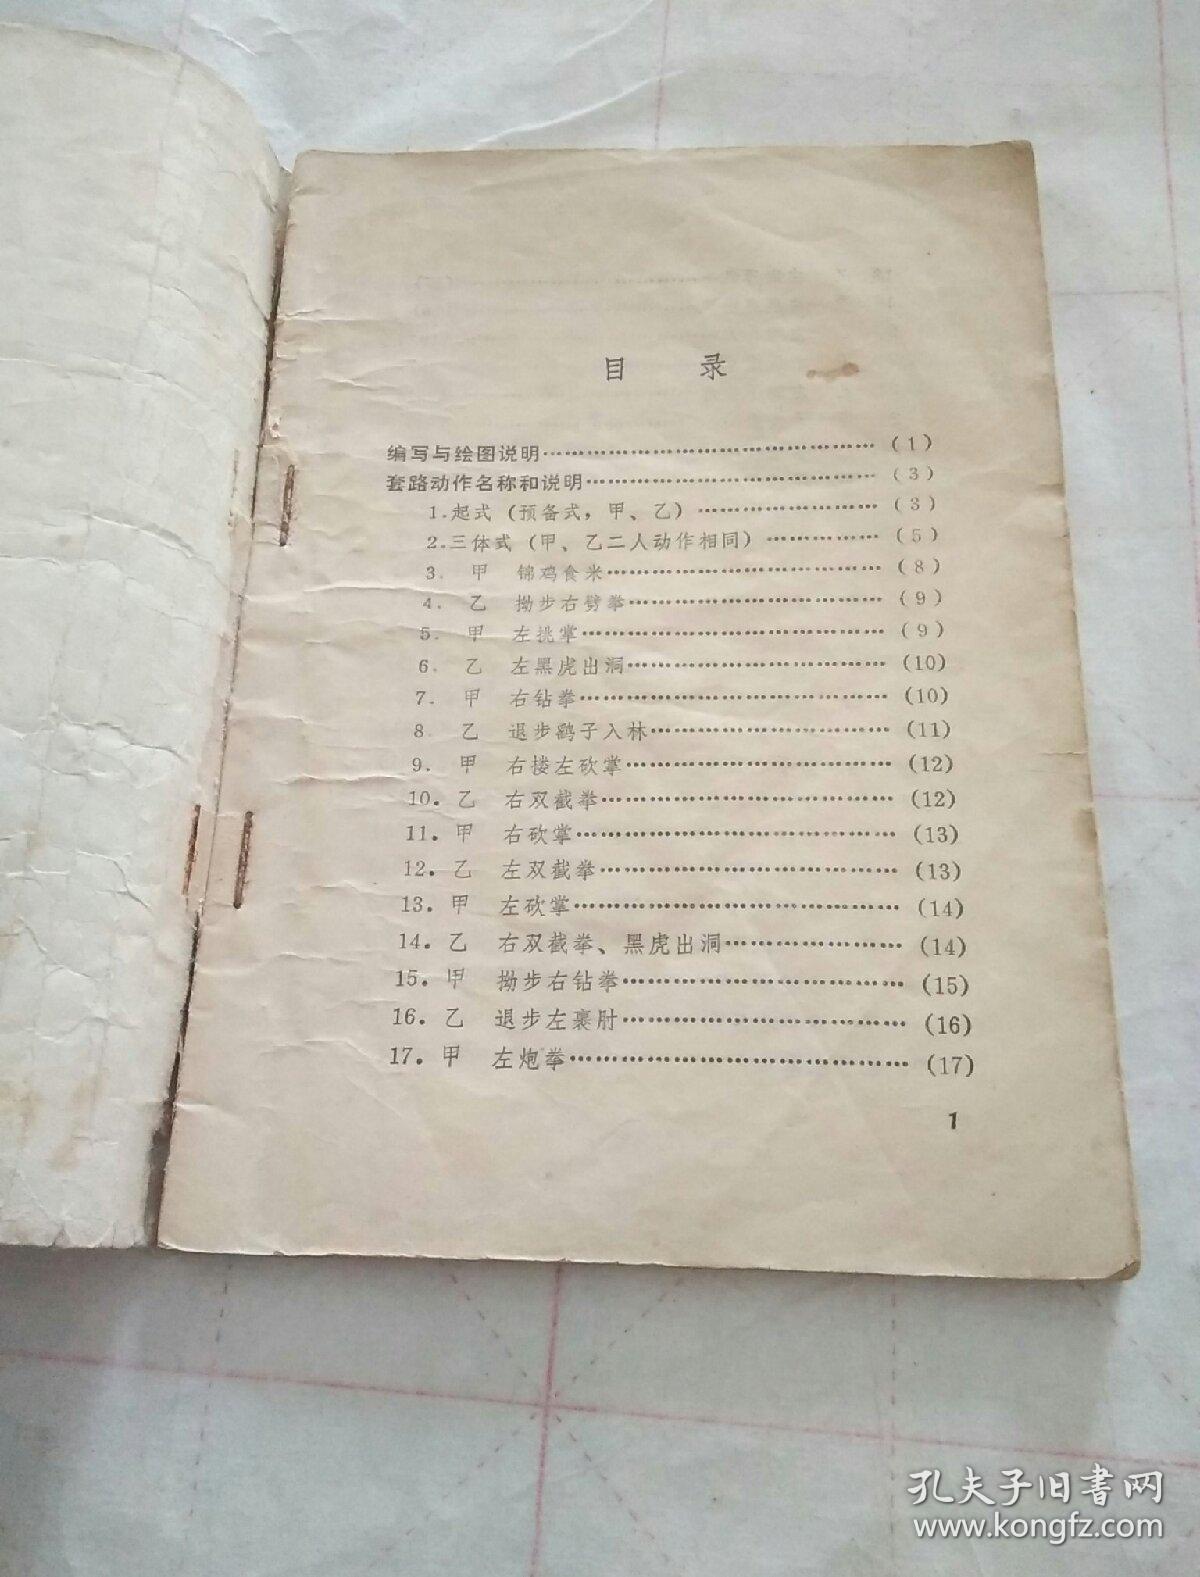 目 录
编写与绘图说明……………………………………(1)
套路动作名称和说明………………………………(3)
1.起式(预备式,甲、乙)…………………(3)
2.三体式(甲、乙二人动作相同)……………(5)
3. 甲 锦鸡食米……………………………(8)
4. 乙 拗步右劈拳…………………………(9)
5. 甲 左挑掌………………………………(9)
6. 乙 左黑虎出洞…………………………(10)
7. 甲 右钻拳………………………………(10)
8 乙 退步鹞子入林………………………(11)
9. 甲 右楼左砍掌…………………………(12)
10. 乙 右双截拳……………………………(12)
11. 甲 右砍掌………………………………(13)
12. 乙 左双截拳……………………………(13)
13. 甲 左砍掌………………………………(14)
14. 乙 右双截拳、黑虎出洞………………(14)
15. 甲 拗步右钻拳…………………………(15)
16. 乙 退步左裹肘…………………………(16)
17. 甲 左炮拳………………………………(17)
1
孔夫子旧书网
www.kongfz.com